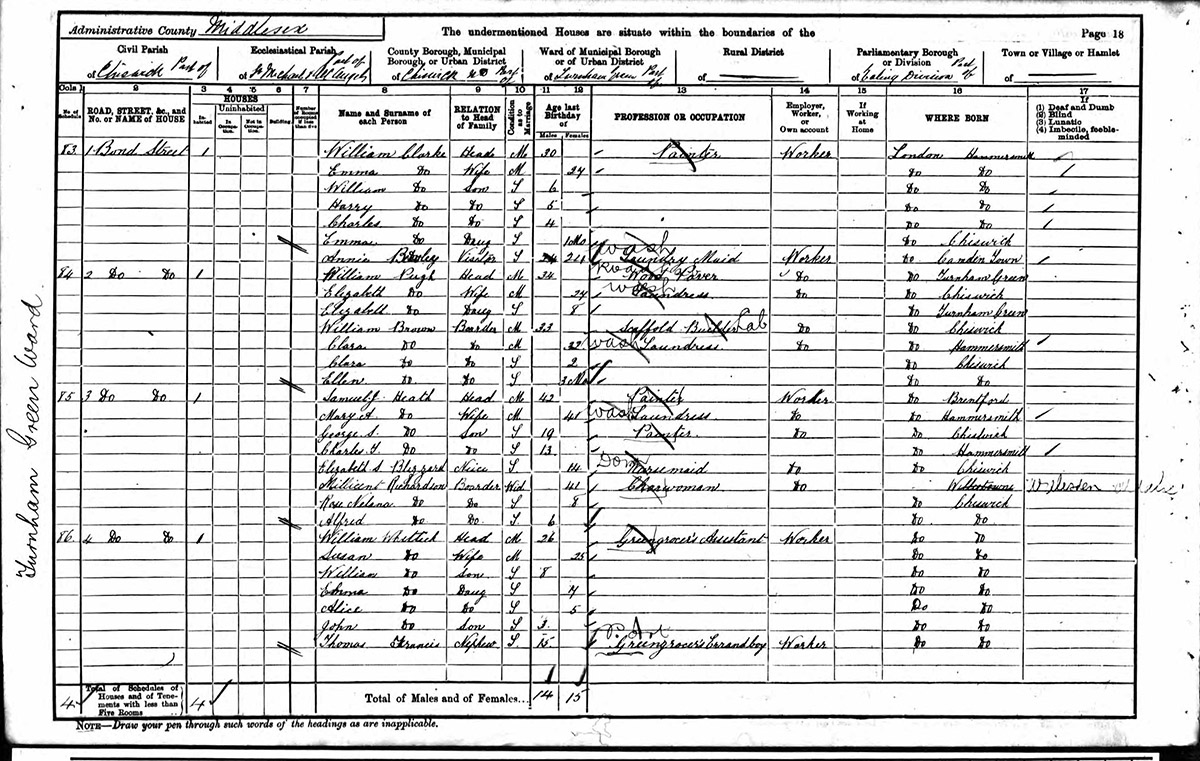 Administrative County Middlesex
The undermentioned Houses are situate within the boundaries of the
Page 18
Civil Parish
of Chiswick Part of
Ecclesiastical Parish
Part of
of
County Borough, Municipal Borough, or Urban District
of Chiswick Part
Ward of Municipal Borough or of Urban District
of Turnham Green Part
Rural District
of
Parliamentary Borough or Division
Part of
of Ealing Division
Town or Village or Hamlet
of
Cols 1 2 3 4 5 6 7 8 9 10 11 12 13 14 15 16 17
No. of Schedule
ROAD, STREET, &c., and No. or NAME of HOUSE
HOUSES
Inhabited
Uninhabited
In Occupation.
Not in Occupation.
Building.
Number of Rooms occupied if less than five
Name and Surname of each Person
RELATION to Head of Family
Condition as to Marriage
Age last Birthday of
Males Females
PROFESSION OR OCCUPATION
Employer, Worker, or Own account
If Working at Home
WHERE BORN
If
(1) Deaf and Dumb
(2) Blind
(3) Lunatic
(4) Imbecile, feeble-minded
83 1 Bond Street 1 William Clarke Head M 30 Painter Worker London Hammersmith
Emma Do Wife M 27 Do Do
William Do Son S 6 Do Do
Harry Do Do S 5 Do Do
Charles Do Do S 4 Do Do
Emma Do Daug S 1 Mo Do Chiswick
wash
Annie Visitor S Laundry Maid Worker Do Camden Town
84 2 Do Do 1 William Pugh Head M 34 Wood Paver Do Do Turnham Green
wash
Elizabeth Do Wife M 27 Laundress Do Do Chiswick
Elizabeth Do Daug S 8 Do Turnham Green
William Brown Boarder M 33 Scaffold Builder Lab Do Do Chiswick
Clara Do Do M 32 wash Laundress Do Do Hammersmith
Clara Do Do S 2 Do Chiswick
Ellen Do Do S 3 Mo Do Do
85 3 Do Do 1 Samuel J Heath Head M 42 Painter Worker Do Brentford
Mary A. Do Wife M 41 wash Laundress Do Do Hammersmith
George S. Do Son S 19 Painter Do Do Chiswick
Charles T. Do Do S 13 Do Hammersmith
Elizabeth S Blizzard Niece S 14 Dom Nursemaid Do Do Chiswick
Millicent Richardson Boarder Wid 41 Charwoman Do Do Willesden
Rose Do Do S 8 Do Chiswick
Alfred Do Do S 6 Do Do
86 4 Do Do 1 William Head M 26 Greengrocer's Assistant Worker Do Do
Susan Do Wife M 25 Do Do
William Do Son S 8 Do Do
Emma Do Daug S 7 Do Do
Alice Do Do S 5 Do Do
John Do Son S 3 Do Do
Thomas Francis Nephew S 15 Greengrocer's Errand boy Worker Do Do
4 Total of Schedules of Houses and of Tenements with less than Five Rooms 4
Total of Males and of Females... 14 15
NOTE—Draw your pen through such words of the headings as are inapplicable.
Turnham Green Ward